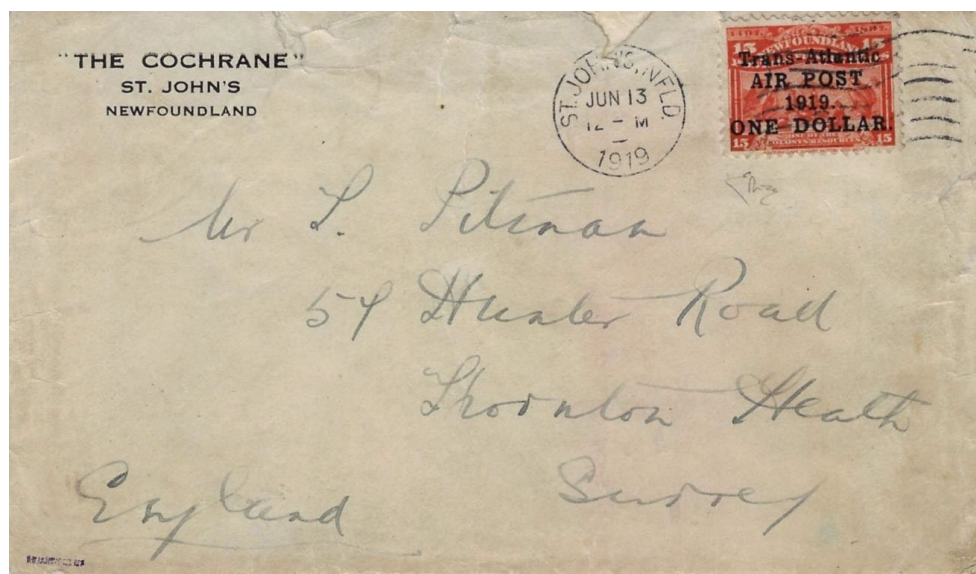 "THE COCHRANE"
ST. JOHN'S
NEWFOUNDLAND
ST. JOHN'S, NFLD
JUN 13
12 - M
1919
1497 1897
15 NEWFOUNDLAND 15
Trans-Atlantic
AIR POST
1919.
ONE DOLLAR.
15 15
Mr L. Pitman
54 Hunter Road
Thornton Heath
Surrey
England